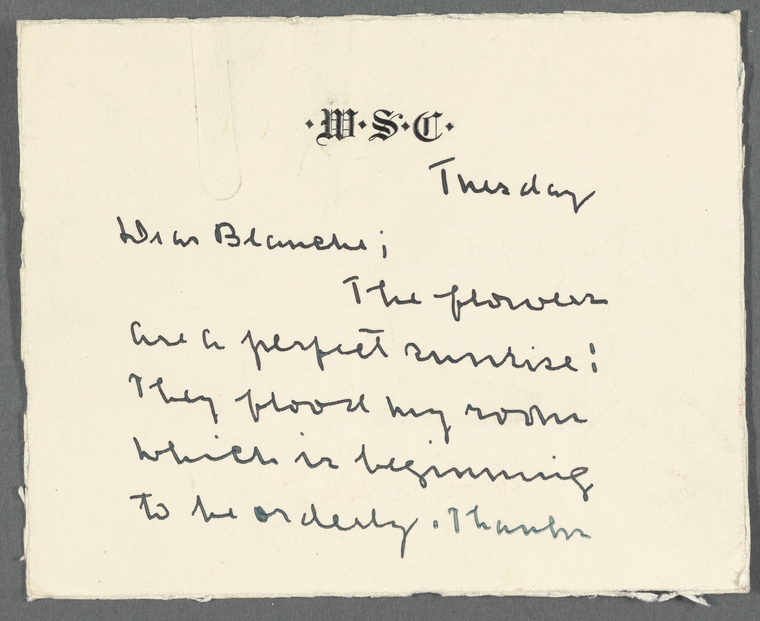 ·W·S·C·
Tuesday
Dear Blanche;
The flowers
are a perfect sunrise!
They flood my room
which is beginning
to be orderly. Thanks